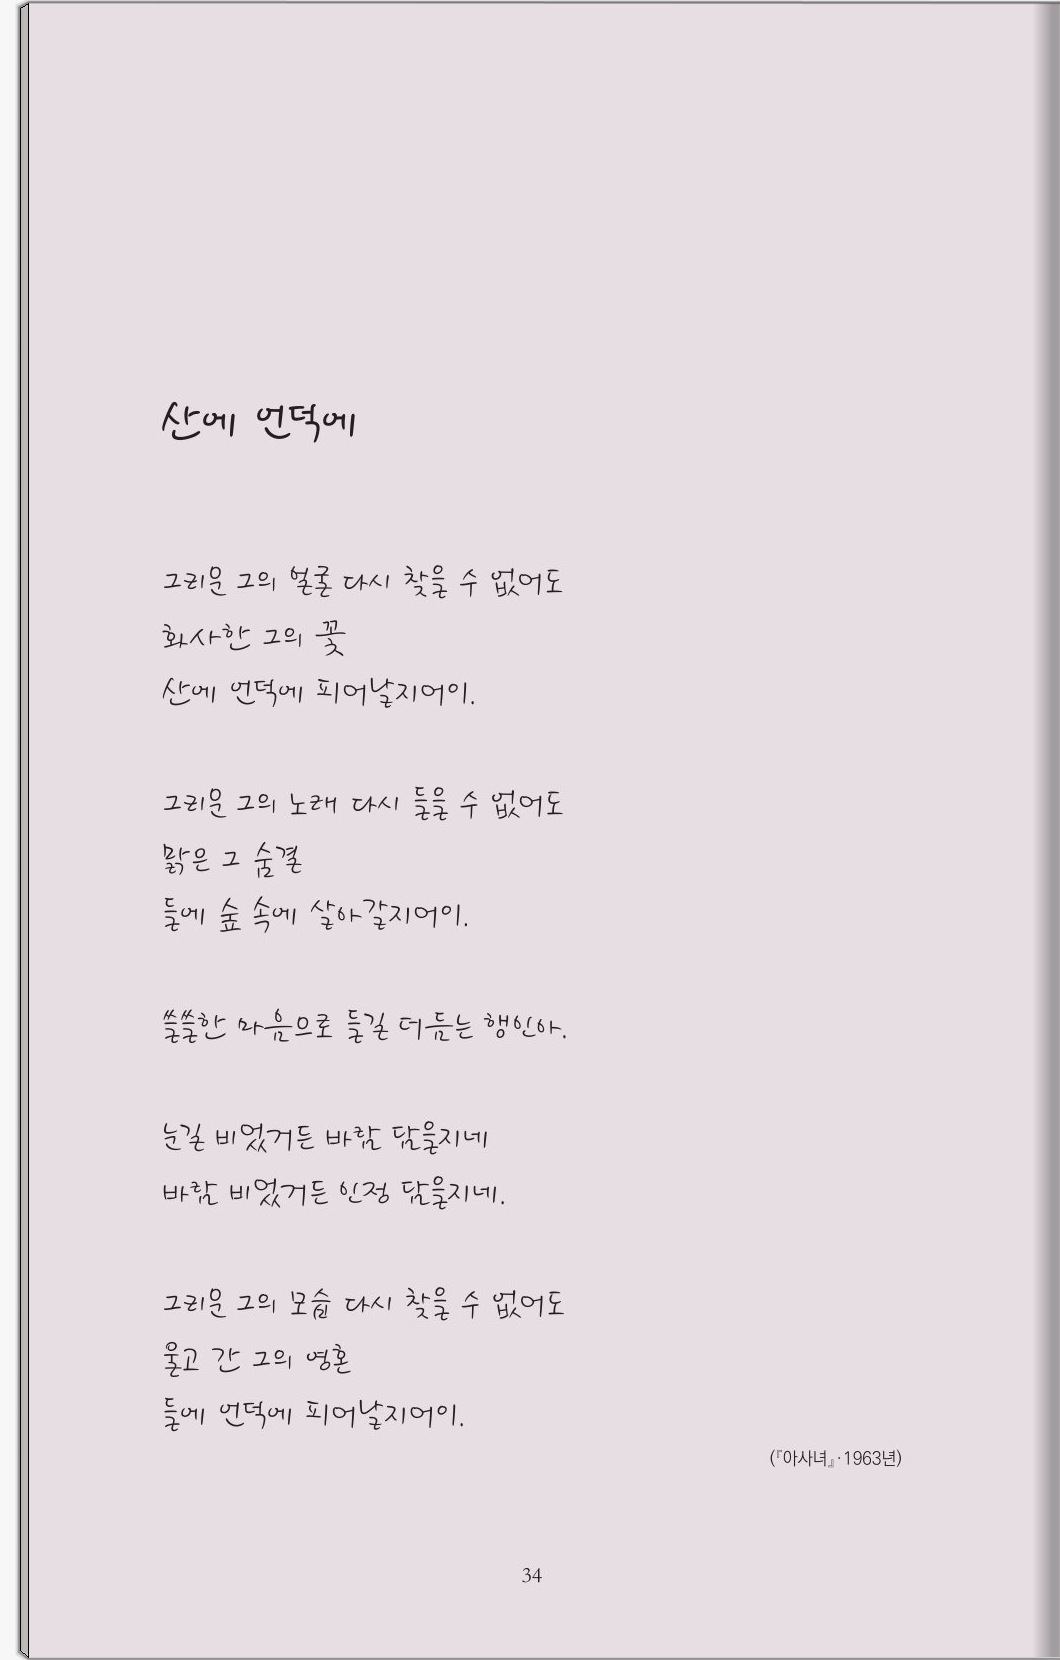 산에 언덕에
그리운 그의 얼굴 다시 찾을 수 없어도
화사한 그의 꽃
산에 언덕에 피어날지어이.
그리운 그의 노래 다시 들을 수 없어도
맑은 그 숨결
들에 숲 속에 살아갈지어이.
쓸쓸한 마음으로 들길 더듬는 행인아.
눈길 비었거든 바람 담을지네
바람 비었거든 인정 담을지네.
그리운 그의 모습 다시 찾을 수 없어도
울고 간 그의 영혼
들에 언덕에 피어날지어이.
(『아사녀』·1963년)
34